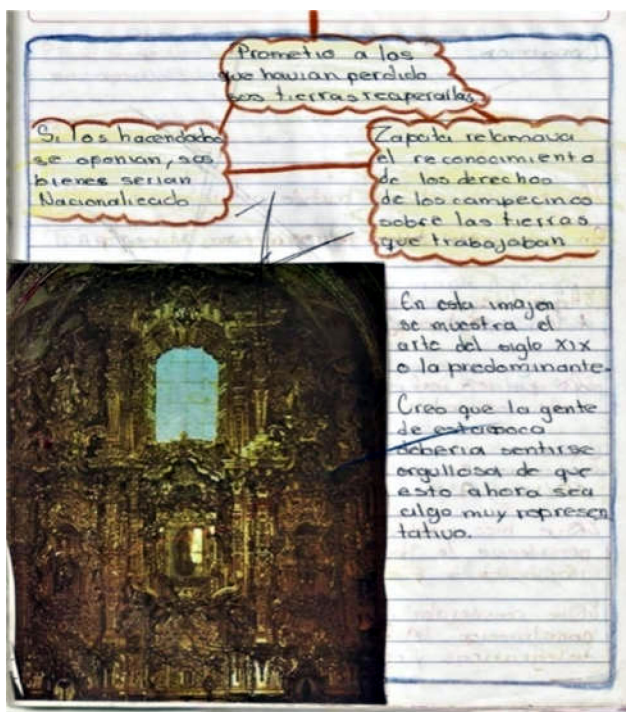 Prometio a los
que havian perdido
sos tierras recaperallas
Si los hacendados
se oponian, sos
bienes serian
Nacionalicado
Zapata reclamava
el reconocimiento
de los derechos
de los campecinos
sobre las tierras
que trabajaban
En esta imajen
se muestra el
arte del siglo XIX
o la predominante.
Creo que la gente
de esta epoca
deberia sentirse
orgullosa de que
esto ahora sea
algo muy represen
tativo.